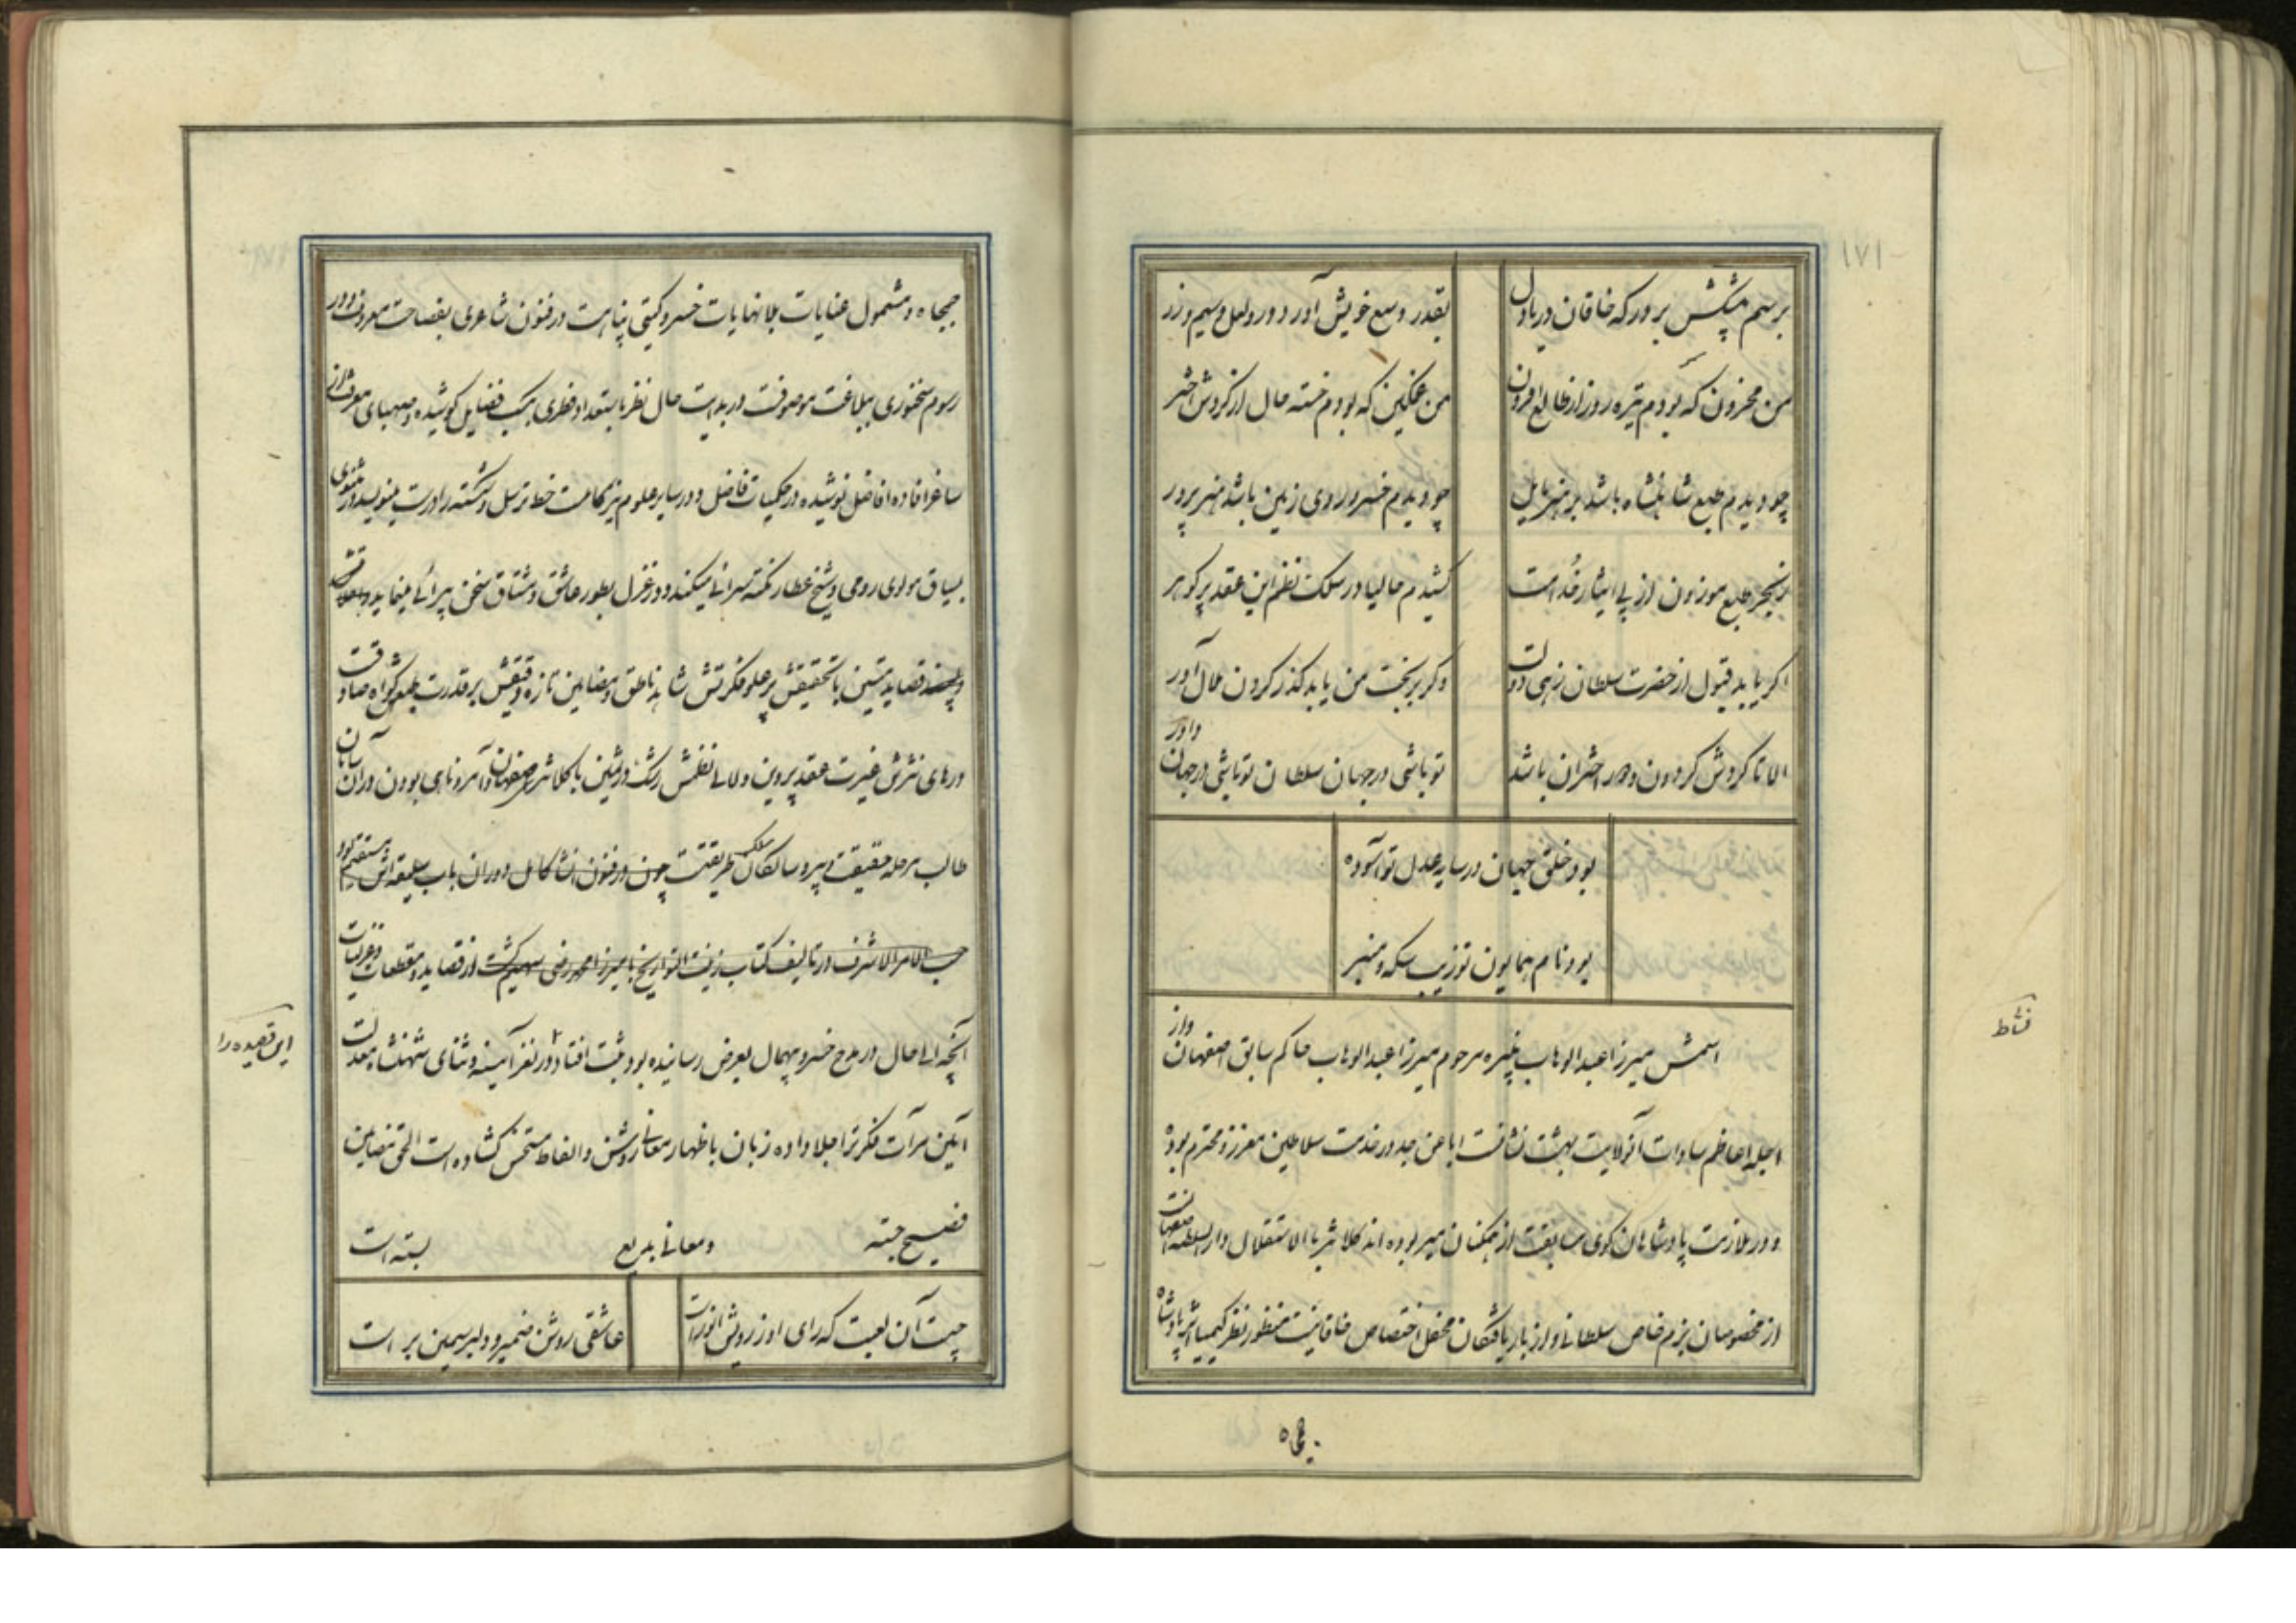 ۱۷۱
برسم پیشکش هر ور که خاقان دریادل
بقدر وسع خویش آورد در و لعل و سیم و زر
من محزون که بودم تیره روز از طالع وارون
من غمگین که بودم خسته حال از گردش اختر
چو دیدم طبع شاهنشاه باشد بر هنر مایل
چو دیدم خسرو روی زمین باشد هنرپرور
ز بحر طبع موزون از پی ایثار خدامت
کشیدم حالیا در سلک نظم این عقد پر گوهر
اگر یابد قبول از حضرت سلطان زهی دولت
وگر بر بخت من باید گذر کردن ملال آور
الا تا گردش گردون و اختران باشد
تو باشی در جهان سلطان تو باشی در جهان داور
بود خلق جهان در سایه عدل تو آسوده
بود نام همایون تو زیب سکه و منبر
نشاط
اسمش میرزا عبدالوهاب نبیره مرحوم میرزا عبدالوهاب حاکم سابق اصفهان و از
اجله اعاظم سادات آنولایت بهشت نشانست ابا عن جد در خدمت سلاطین معزز و محترم بوده
و در ملازمت پادشاهان گوی سابقت از همگنان میر بوده اند کلانتر بالاستقلال دارالسلطنه اصفهان
از مخصوصان بزم خاص سلطانی و از باریافتگان محفل اختصاص خاقانیست منظور نظر کیمیا اثر پادشاه
جمجاه
جمجاه و مشمول عنایات بلانهایات خسرو گیتی پناهست در فنون شاعری بفصاحت معروف و در
رسوم سخنوری ببلاغت موصوفست در بدایت حال نظر باستعداد فطری بکسب فضایل کوشیده و صهبای معرفت از
ساغر افاده افاضل نوشیده در حکمیات فاضل و در سایر علوم نیز کامست خط ترسل و شکسته را درست مینویسد در مثنوی
بسیاق مولوی رومی و شیخ عطار نکته سرائی میکند و در غزل بطور عاشق و مشتاق سخن پیرائی مینماید
قصاید متین با تحقیقش بر علو فکرتش شاهد ناطق و مضامین تازه دقیقش بر قدرت طبعش گواه صادقست
درهای نثرش غیرت عقد پروین و لالی نظمش رشک در ثمین با کلانتری اصفهان و آمر و ناهی بودن در آن سامان
طالب مرحله حقیقت و پیرو سالکان مسلک طریقت چون در فنون انشا کامل و در ان باب سلیقه اش مستقیم بود
حسب الامر الاشرف در تالیف کتاب زینت التواریخ با میرزا محمد رضی سهیم گشت از قصاید و مقطعات و غزلیات
آنچه الی حال در مدح خسرو بیهمال بعرض رسانیده بود ثبت افتاد در لغز آیینه و ثنای شهنشاه معدلت
این قصیده را
آیین مرآت فکرتر اجلا داده زبان باظهار معانی روشن و الفاظ مستحسن گشاده است الحق مضامین
فصیح جسته و معانی بدیع بسته است
چیست آن لعبت که رای او ز رویش انورست
عاشقی روشن ضمیر و دلبر سیمین بر است